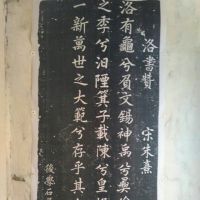 洛書贊
宋朱熹
洛有龜兮負文錫神禹兮彝倫
之季兮汨陻箕子載陳兮皇極
一新萬世之大範兮存乎其
後學石